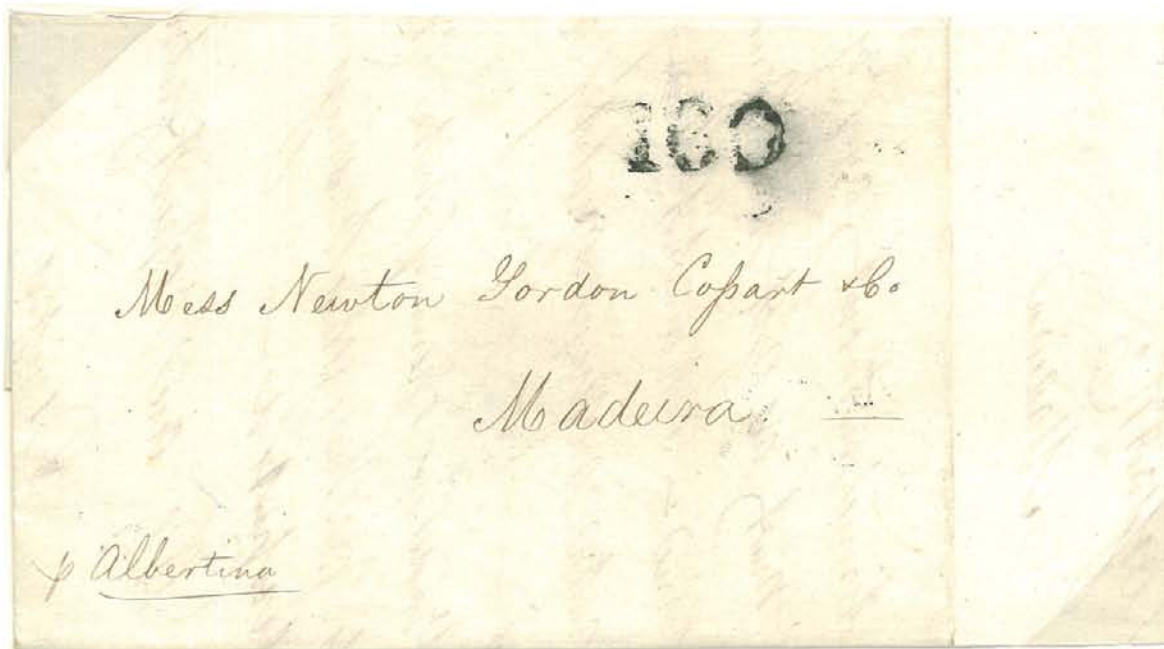 160
Mess Newton Gordon Coſsart & Co
Madeira.
p Albertina